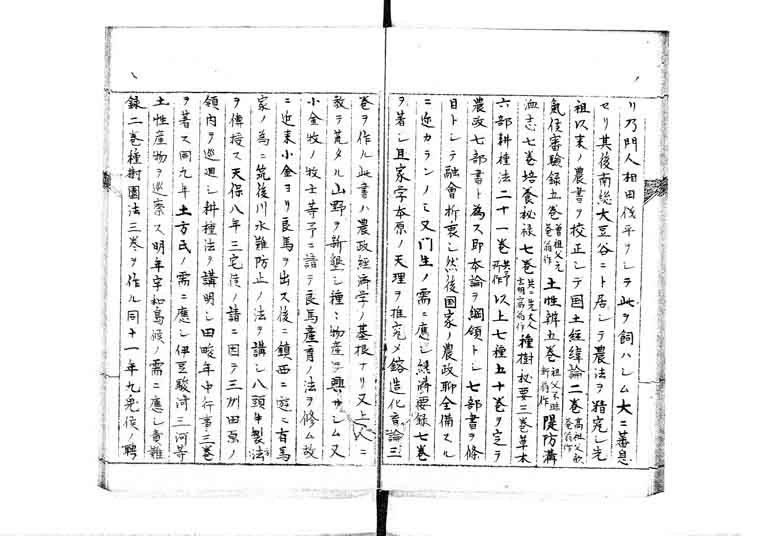 リ乃門人相田伐平ヲシテ此ヲ飼ハシム大ニ蕃息
セリ其後南総大豆谷ニト居シテ農法ヲ精究シ元
祖以来ノ農書ヲ校正シテ国土経緯論二巻高祖父歓庵翁作
気候審驗録五巻曾祖父元庵翁作土性辨五巻祖父不昧軒翁作隄防溝
洫志七巻培養秘禄七巻共ニ先大人玄明窩翁作種樹秘要三巻草木
六部耕種法二十一巻共予所作以上七種五十巻ヲ定テ
農政七部書ト為ス即本論ヲ綱領トシ七部書ヲ條
目トシテ融會折衷シ然後国家ノ農政聊全備スル
ニ近カランノミ又門生ノ需ニ應シ経済要録七巻
ヲ著シ且家学本原ノ天理ヲ推究メ鎔造化育論三
巻ヲ作ル此書ハ農政経済学ノ基根ナリ又上人ニ
教テ荒タル山野ヲ新墾シ種々物産ヲ興サシム又
小金牧ノ牧士等予ニ請テ良馬産育ノ法ヲ修ム故
ニ近来小金ヨリ良馬ヲ出ス後ニ鎮西ニ遊ニ有馬
家ノ為ニ筑後川水難防止ノ法ヲ講シ八頭牛製法
ヲ傳授ス天保八年三宅侯ノ請ニ因テ三州田原ノ
領内ヲ巡廻シ耕種法ヲ講明シ田畯年中行事三巻
ヲ著ス同九年土方氏ノ需ニ應シ伊豆駿河三河等
土性産物ヲ巡察ス明年宇和島候ノ需ニ應シ責難
録二巻種樹園法三巻ヲ作ル同十一年九鬼侯ノ聘